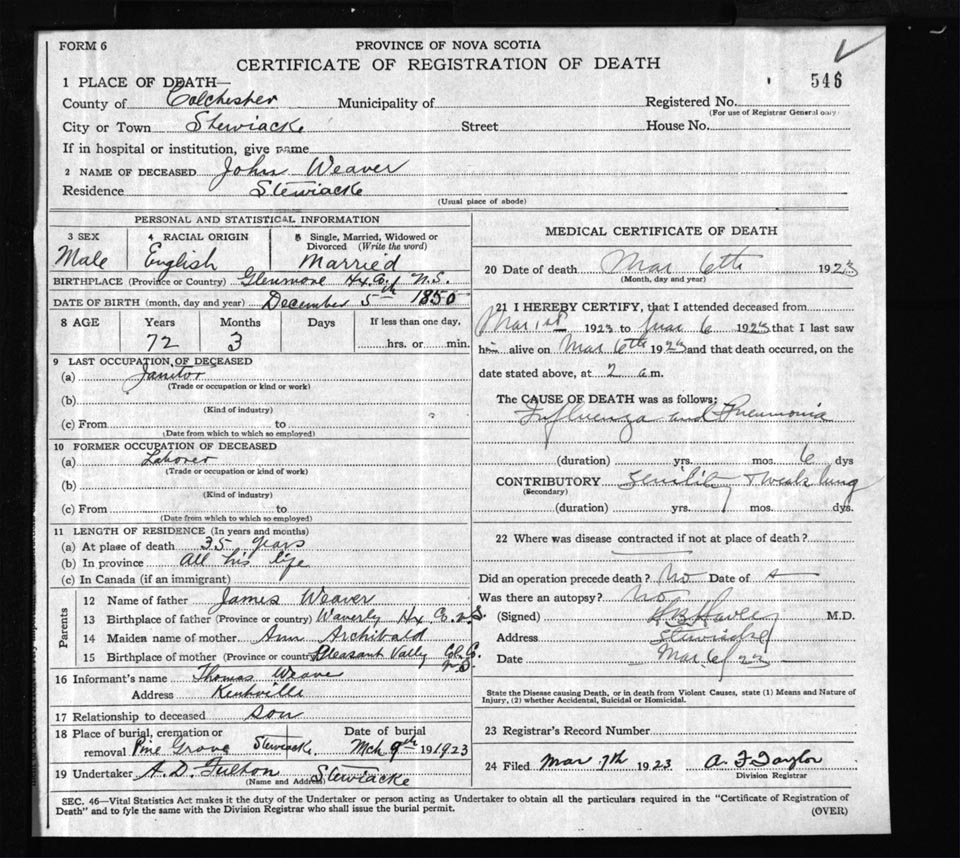 FORM 6
PROVINCE OF NOVA SCOTIA
CERTIFICATE OF REGISTRATION OF DEATH
546
1 PLACE OF DEATH—
County of Colchester Municipality of Registered No.
(For use of Registrar General only)
City or Town Stewiacke Street House No.
If in hospital or institution, give name
2 NAME OF DECEASED John Weaver
Residence Stewiacke
(Usual place of abode)
PERSONAL AND STATISTICAL INFORMATION
3 SEX 4 RACIAL ORIGIN 5 Single, Married, Widowed or Divorced (Write the word)
Male English Married
BIRTHPLACE (Province or Country) Glenmore Hx. Co. N.S.
DATE OF BIRTH (month, day and year) December 5th 1850
8 AGE Years Months Days If less than one day,
72 3 hrs. or min.
9 LAST OCCUPATION OF DECEASED
(a) Janitor
(Trade or occupation or kind or work)
(b)
(Kind of industry)
(c) From to
(Date from which to which so employed)
10 FORMER OCCUPATION OF DECEASED
(a) Laborer
(Trade or occupation or kind of work)
(b)
(Kind of industry)
(c) From to
(Date from which to which so employed)
11 LENGTH OF RESIDENCE (In years and months)
(a) At place of death 35 years
(b) In province All his life
(c) In Canada (if an immigrant)
Parents
12 Name of father James Weaver
13 Birthplace of father (Province or country) Waverly Hx Co. N.S.
14 Maiden name of mother Ann Archibald
15 Birthplace of mother (Province or country) Pleasant Vally Col. Co. N.S.
16 Informant's name Thomas Weaver
Address Kentville
17 Relationship to deceased son
18 Place of burial, cremation or Date of burial
removal Pine Grove Stewiacke Mch 9th 191923
19 Undertaker A. D. Fulton
(Name and Address) Stewiacke
MEDICAL CERTIFICATE OF DEATH
20 Date of death Mar 6th 1923
(Month, day and year)
21 I HEREBY CERTIFY, that I attended deceased from
Mar 1st 1923 to Mar 6 1923 that I last saw
him alive on Mar 6th 1923 and that death occurred, on the
date stated above, at 2 a.m.
The CAUSE OF DEATH was as follows:
Influenza and Pneumonia
(duration) yrs. mos. 6 dys
CONTRIBUTORY Senility & weak lung
(Secondary)
(duration) yrs. mos. dys.
22 Where was disease contracted if not at place of death?
Did an operation precede death? No Date of
Was there an autopsy? No
(Signed) M.D.
Address Stewiacke
Date Mar 6/23
State the Disease causing Death, or in death from Violent Causes, state (1) Means and Nature of
Injury, (2) whether Accidental, Suicidal or Homicidal.
23 Registrar's Record Number
24 Filed Mar 7th 1923 A. F. Taylor
Division Registrar
SEC. 46—Vital Statistics Act makes it the duty of the Undertaker or person acting as Undertaker to obtain all the particulars required in the "Certificate of Registration of
Death" and to fyle the same with the Division Registrar who shall issue the burial permit.
(OVER)